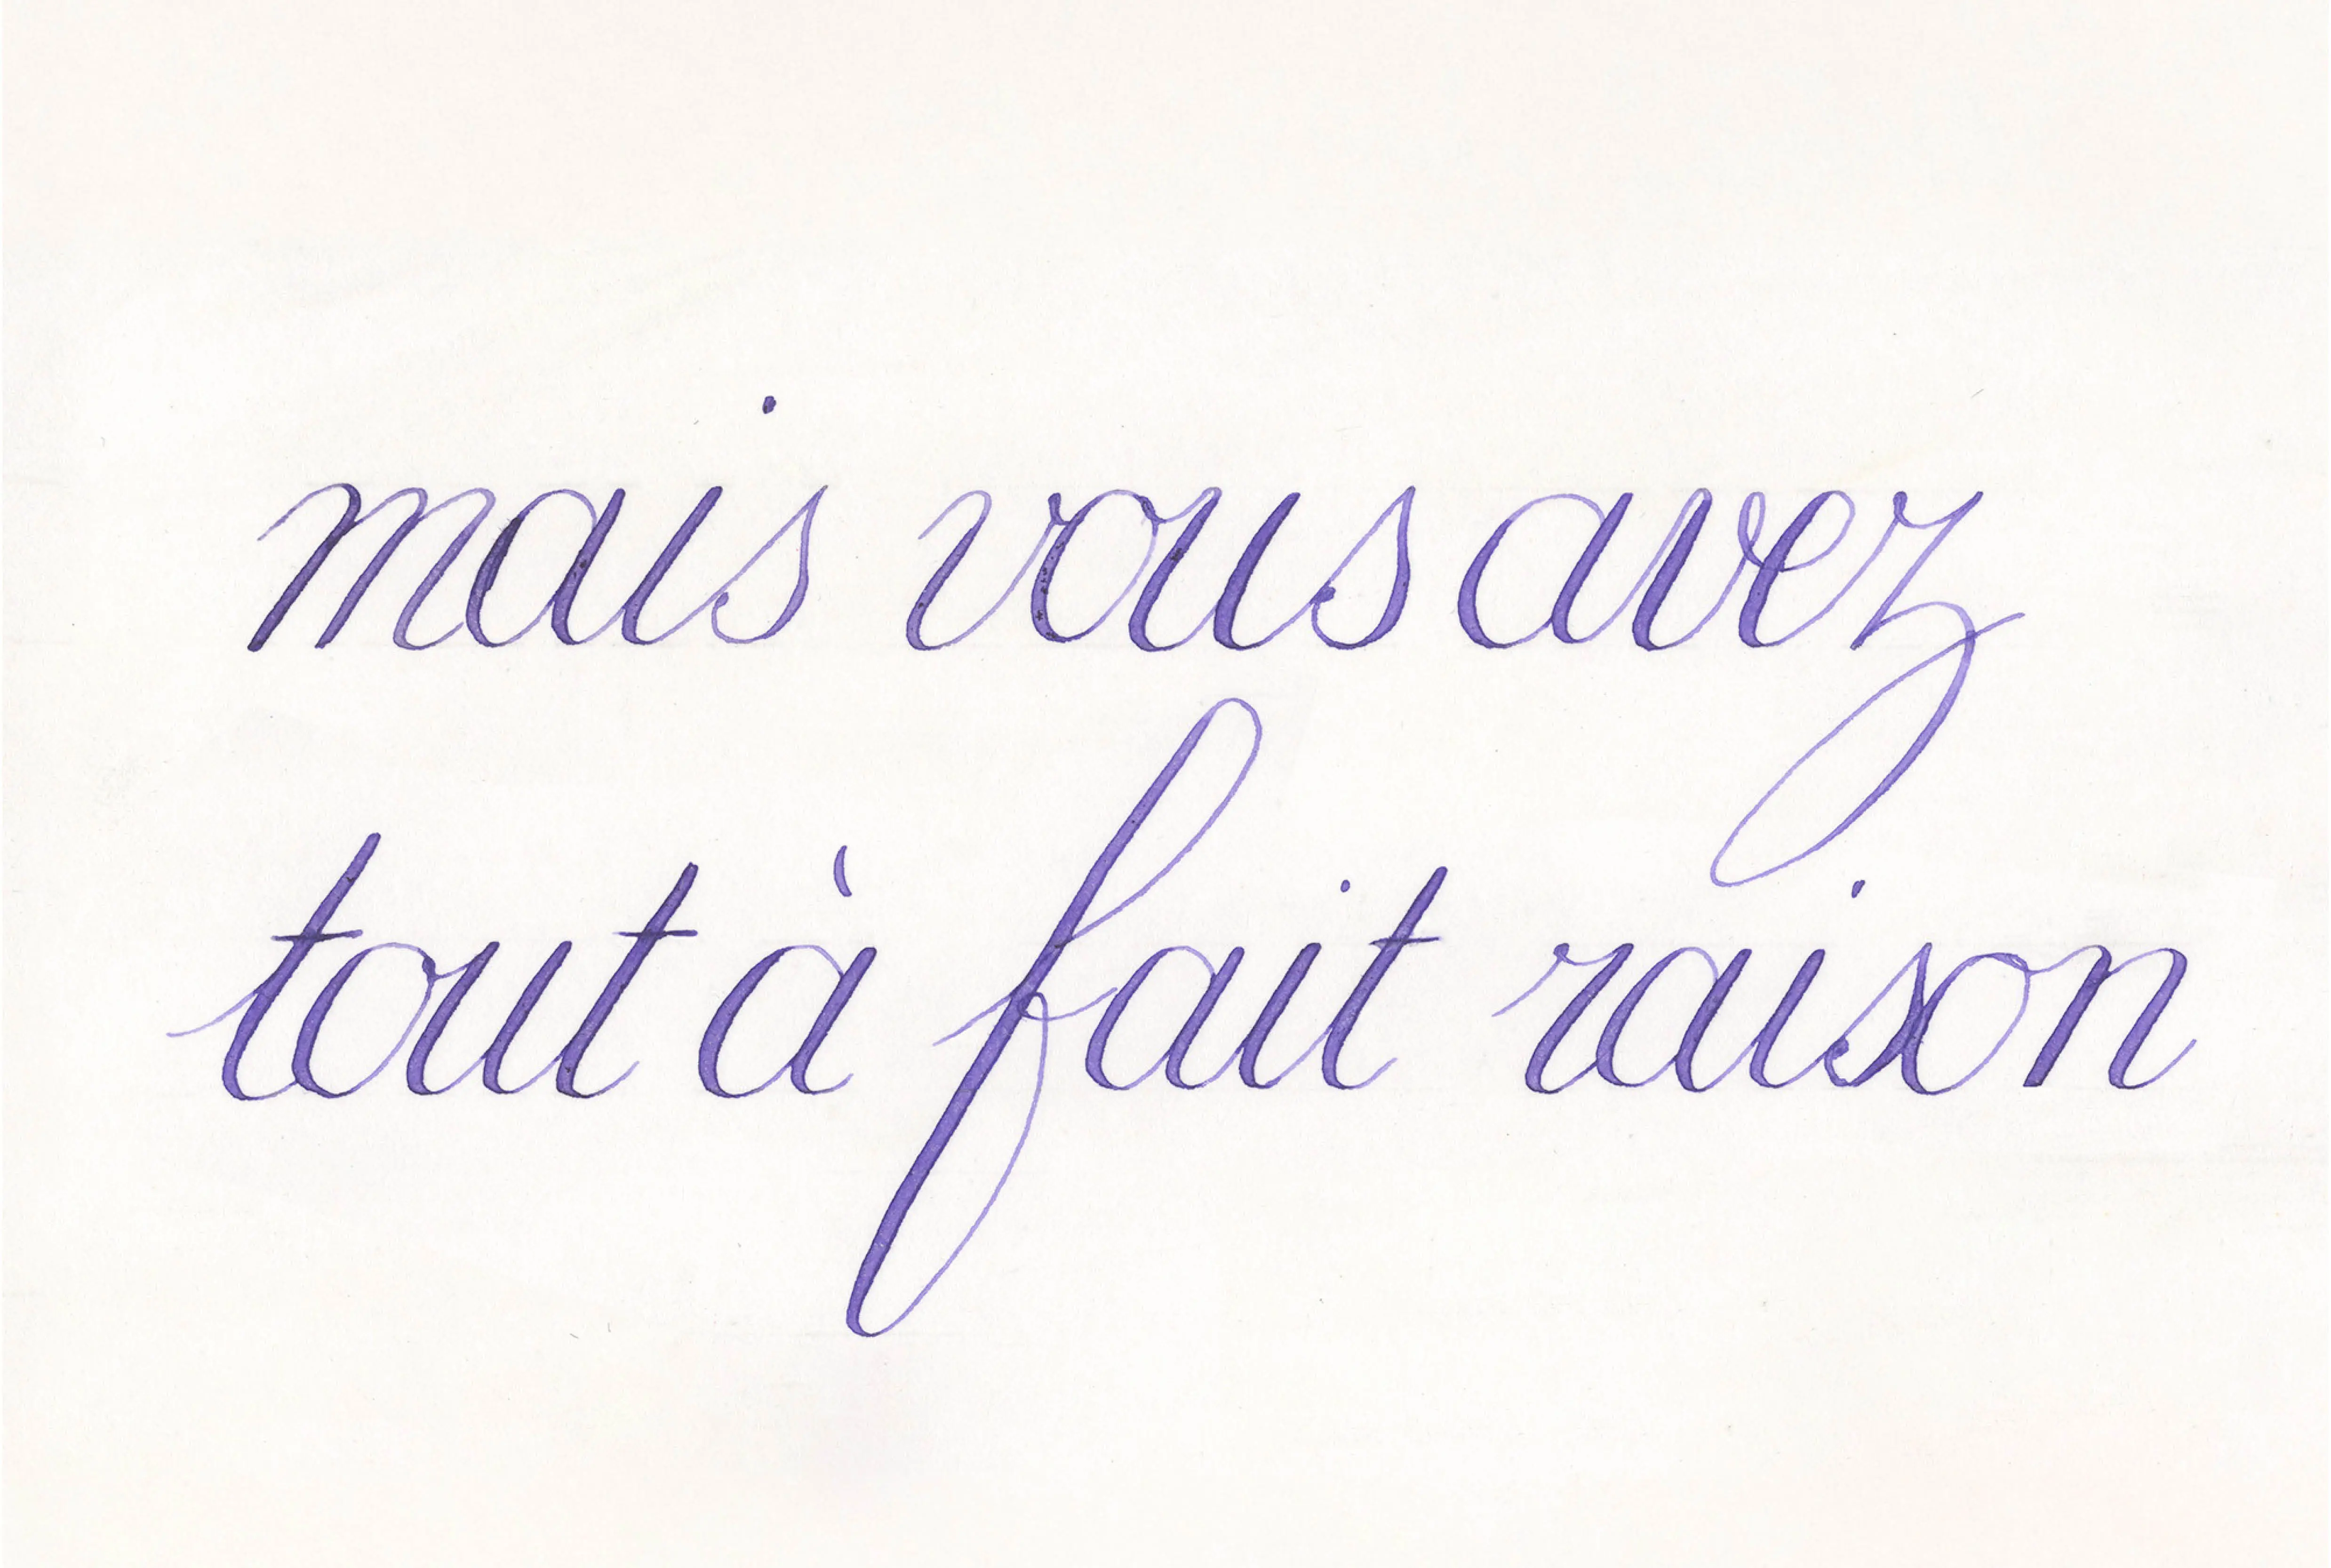 mais vous avez
tout à fait raison